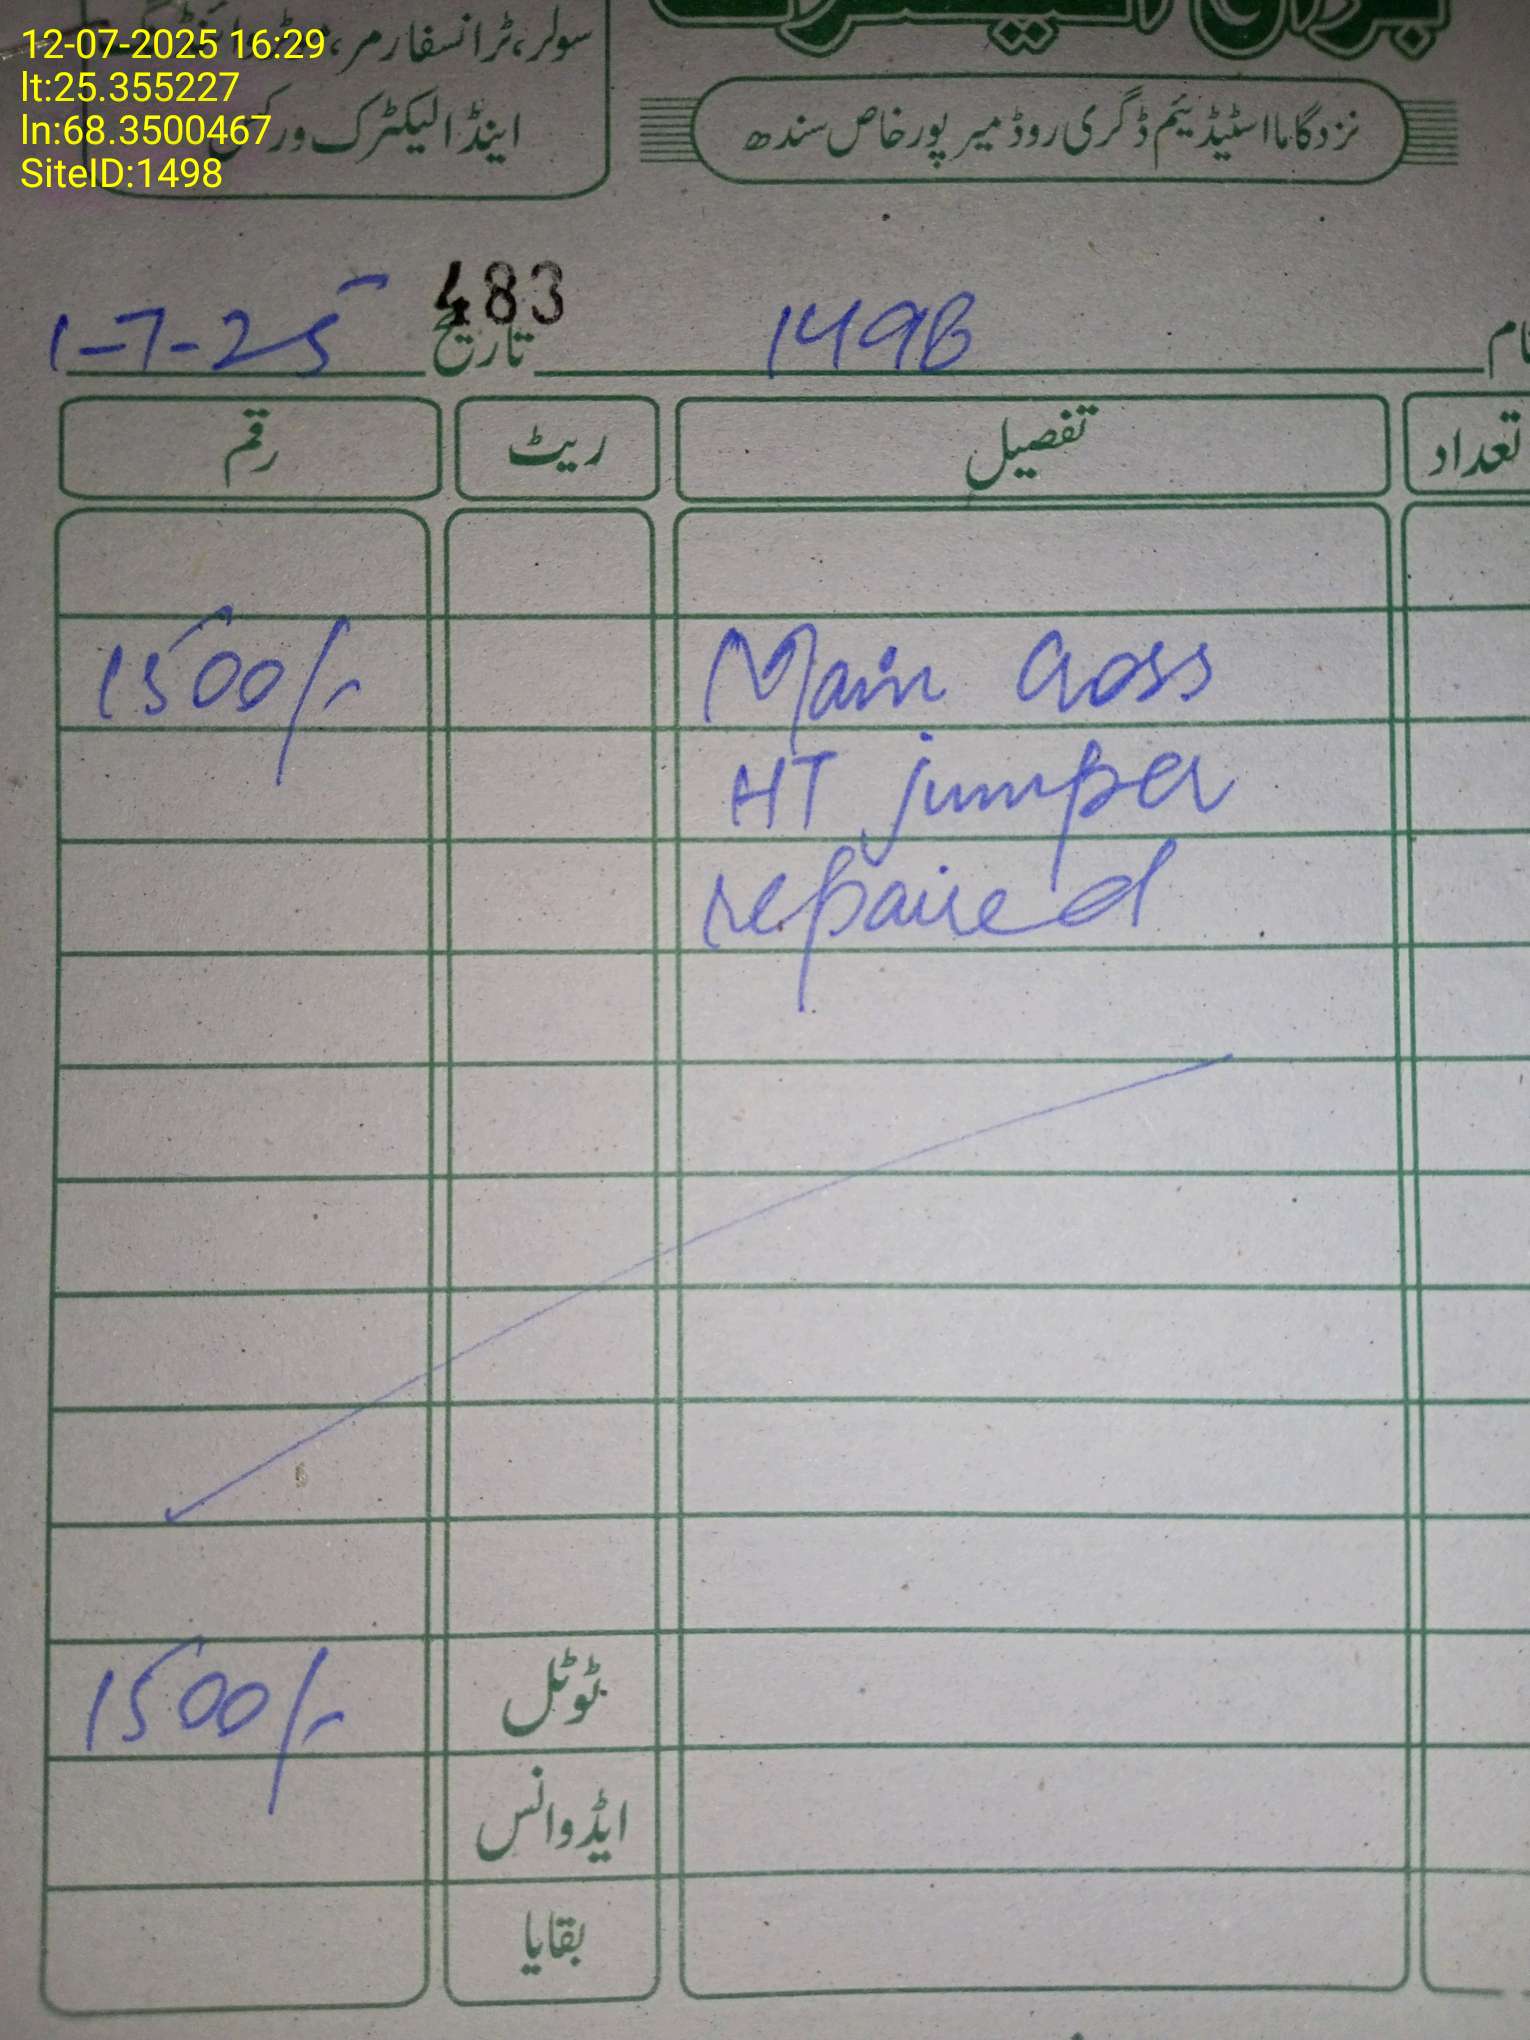 12-07-2025 16:29
lt:25.355227
ln:68.3500467
SiteID:1498
سولر، ٹرانسفارمر،
اینڈ الیکٹرک ورکس
نزد گاما اسٹیڈیئم ڈگری روڈ میرپورخاص سندھ
483
نام 1498 تاریخ 1-7-25
تعداد تفصیل ریٹ رقم
Main Cross 1500/-
HT jumper
repaired
ٹوٹل 1500/-
ایڈوانس
بقایا